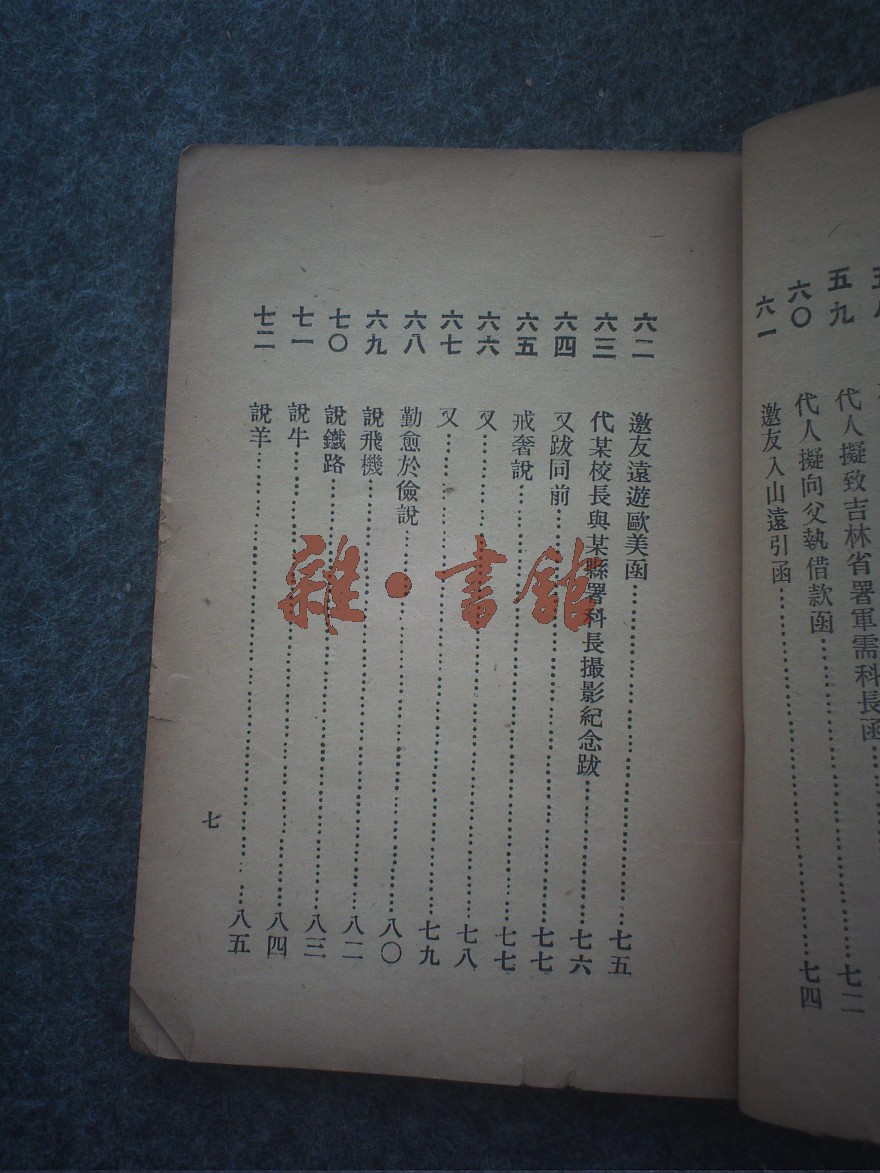 五九 代人擬致吉林省署軍需科長函
六〇 代人擬向父執借款函……七二
六一 邀友入山遠引函……七四
六二 邀友遠遊歐美函……七五
六三 代某校長與某縣署科長撮影紀念跋……七六
六四 又跋同前……七七
六五 戒奢說……七七
六六 又……七八
六七 又……七九
六八 勤愈於儉說……八〇
六九 說飛機……八二
七〇 說鐵路……八三
七一 說牛……八四
七二 說羊……八五
七
雜·書館